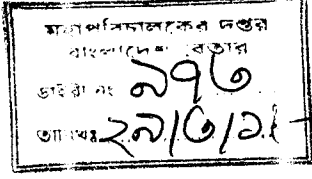 মহাপরিচালকের দপ্তর
বাংলাদেশ বেতার
ডাইরী নং ৯৭৩
তাং ২৯/৩/১